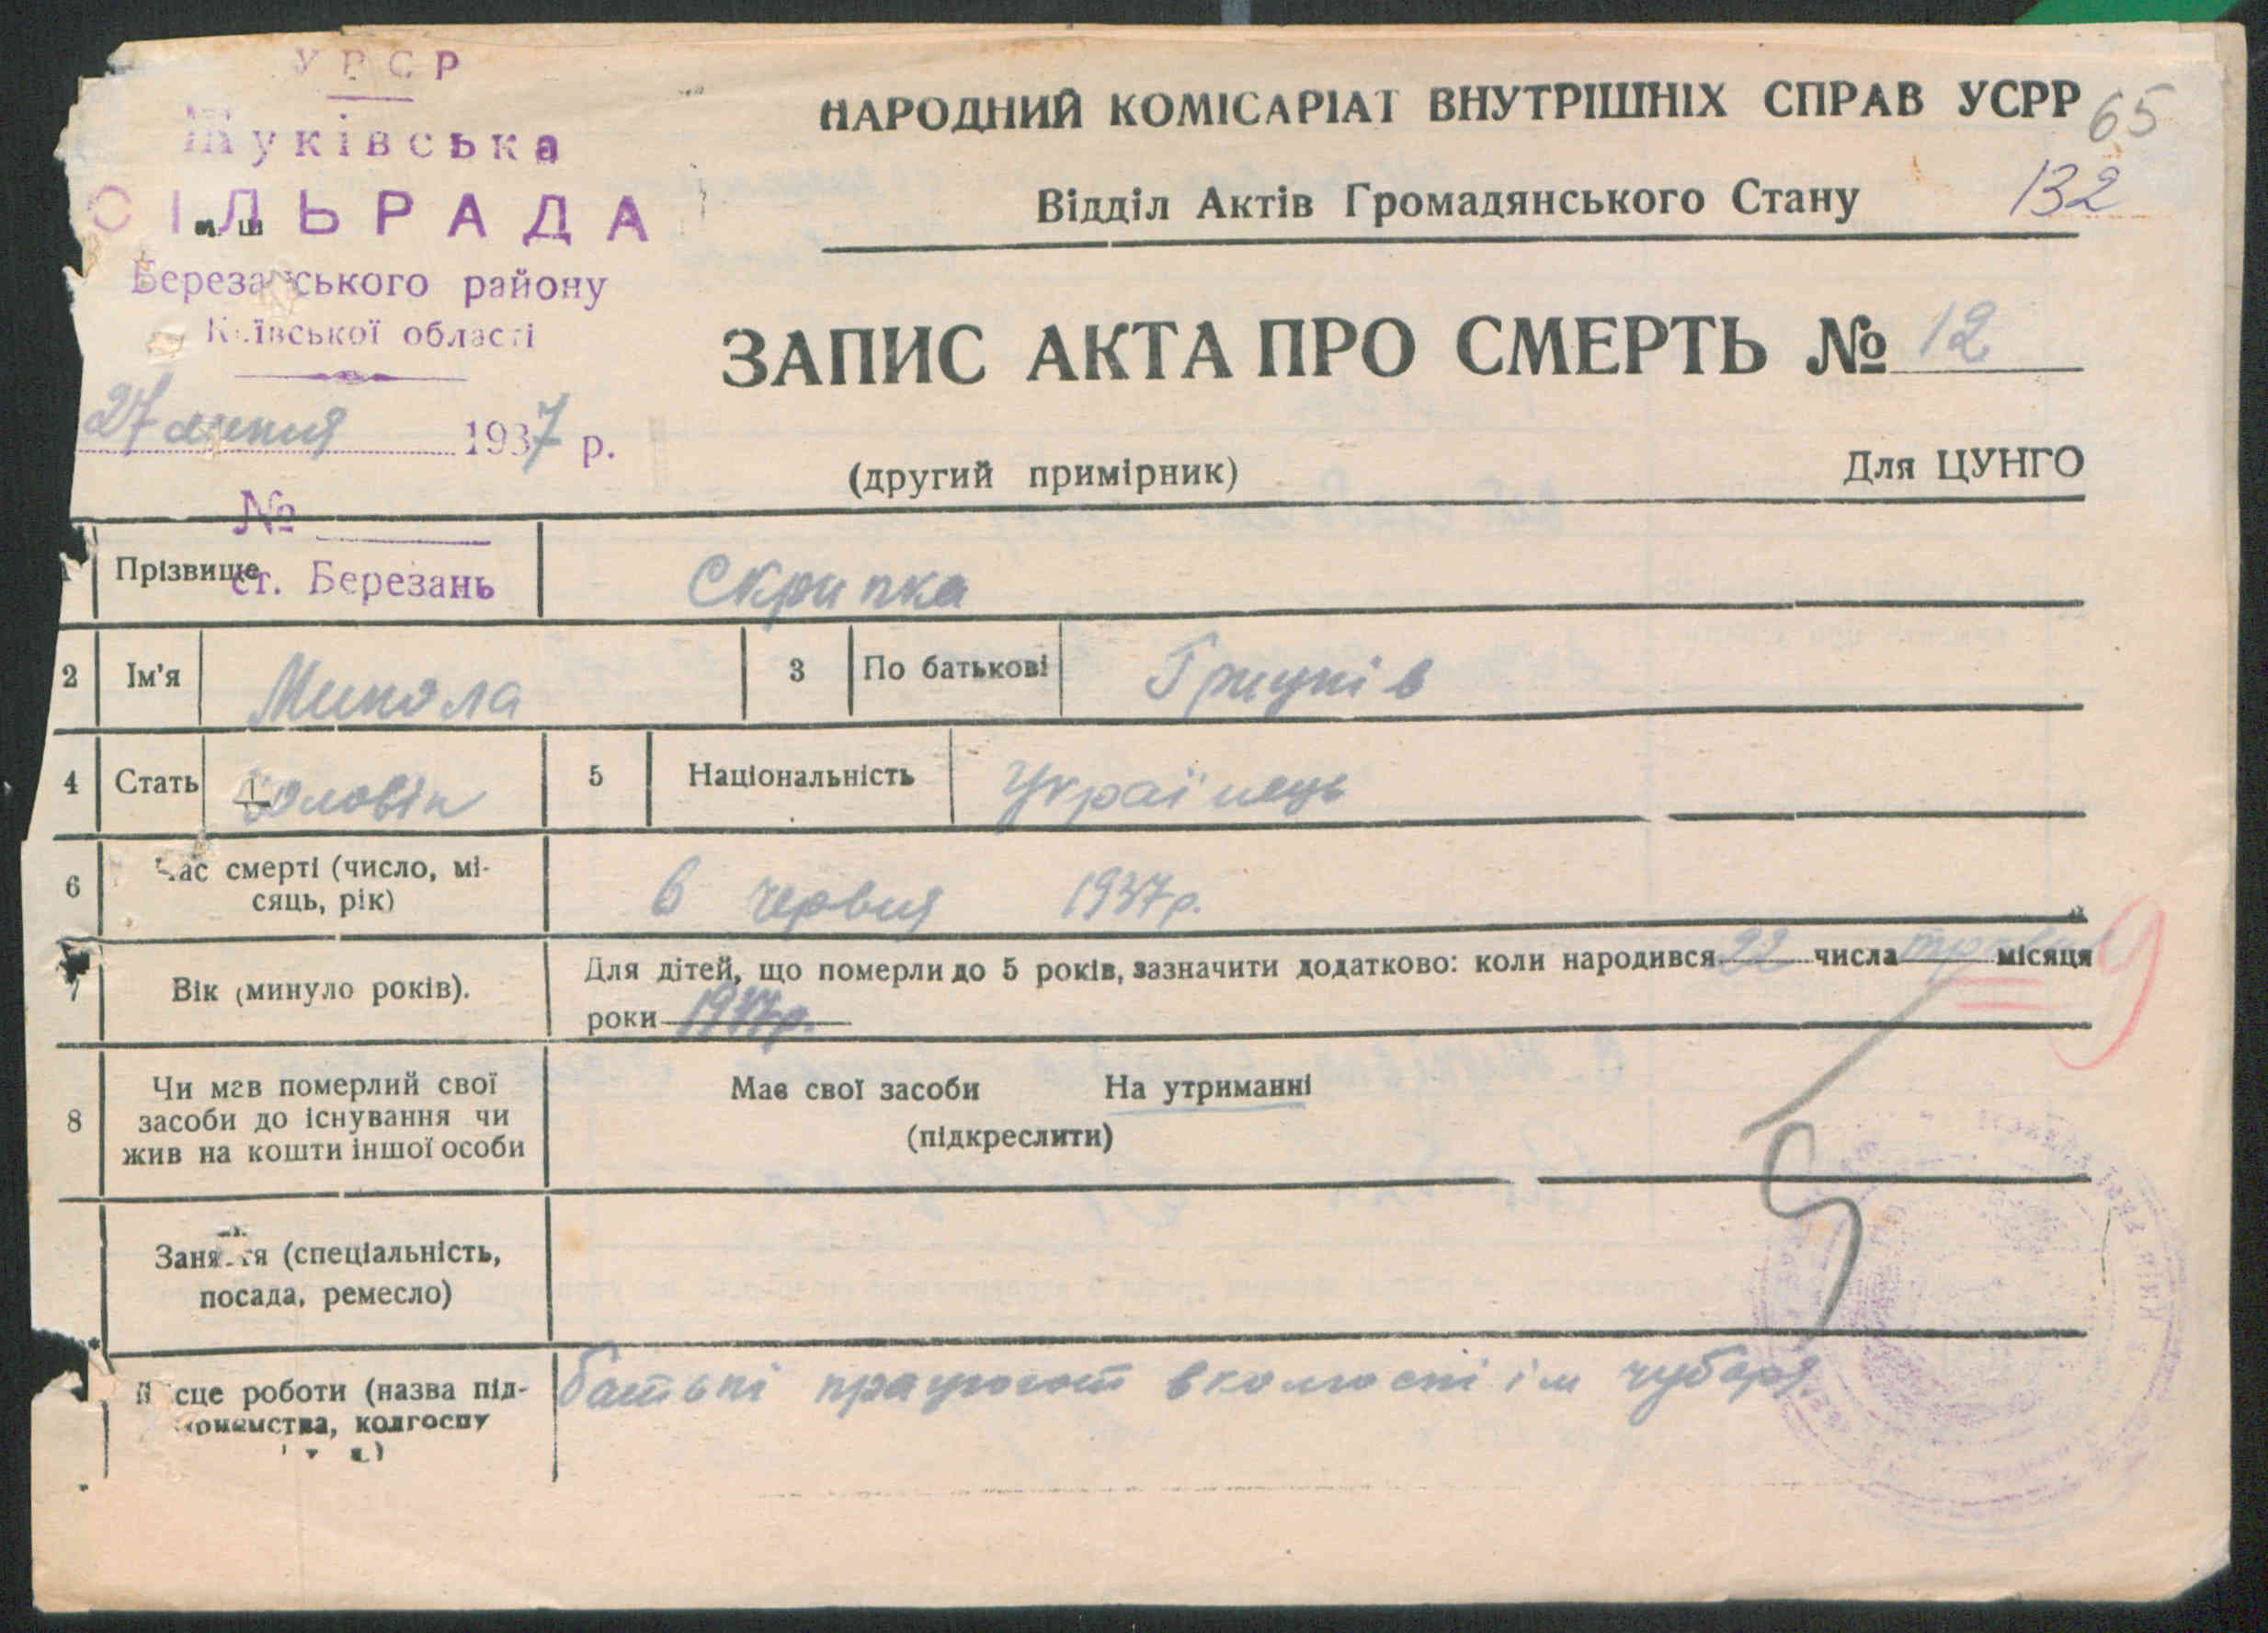 УРСР
Жуківська
СІЛЬРАДА
Березанського району
Київської області
27 липня 1937 р.
№
ст. Березань
НАРОДНИЙ КОМІСАРІАТ ВНУТРІШНІХ СПРАВ УСРР
65
Відділ Актів Громадянського Стану
132
ЗАПИС АКТА ПРО СМЕРТЬ № 12
(другий примірник) Для ЦУНГО
1 Прізвище Скрипка
2 Ім'я Микола 3 По батькові Грицків
4 Стать Чоловік 5 Національність Українець
6 Час смерті (число, мі-
сяць, рік)
6 червня 1937р.
7 Вік (минуло років).
Для дітей, що померли до 5 років, зазначити додатково: коли народився 22 числа травня місяця
роки 1937р.
8 Чи мав померлий свої
засоби до існування чи
жив на кошти іншої особи
Має свої засоби На утриманні
(підкреслити)
Заняття (спеціальність,
посада, ремесло)
Місце роботи (назва під-
приємства, колгоспу
батьки працюют в колгоспі ім чубаря